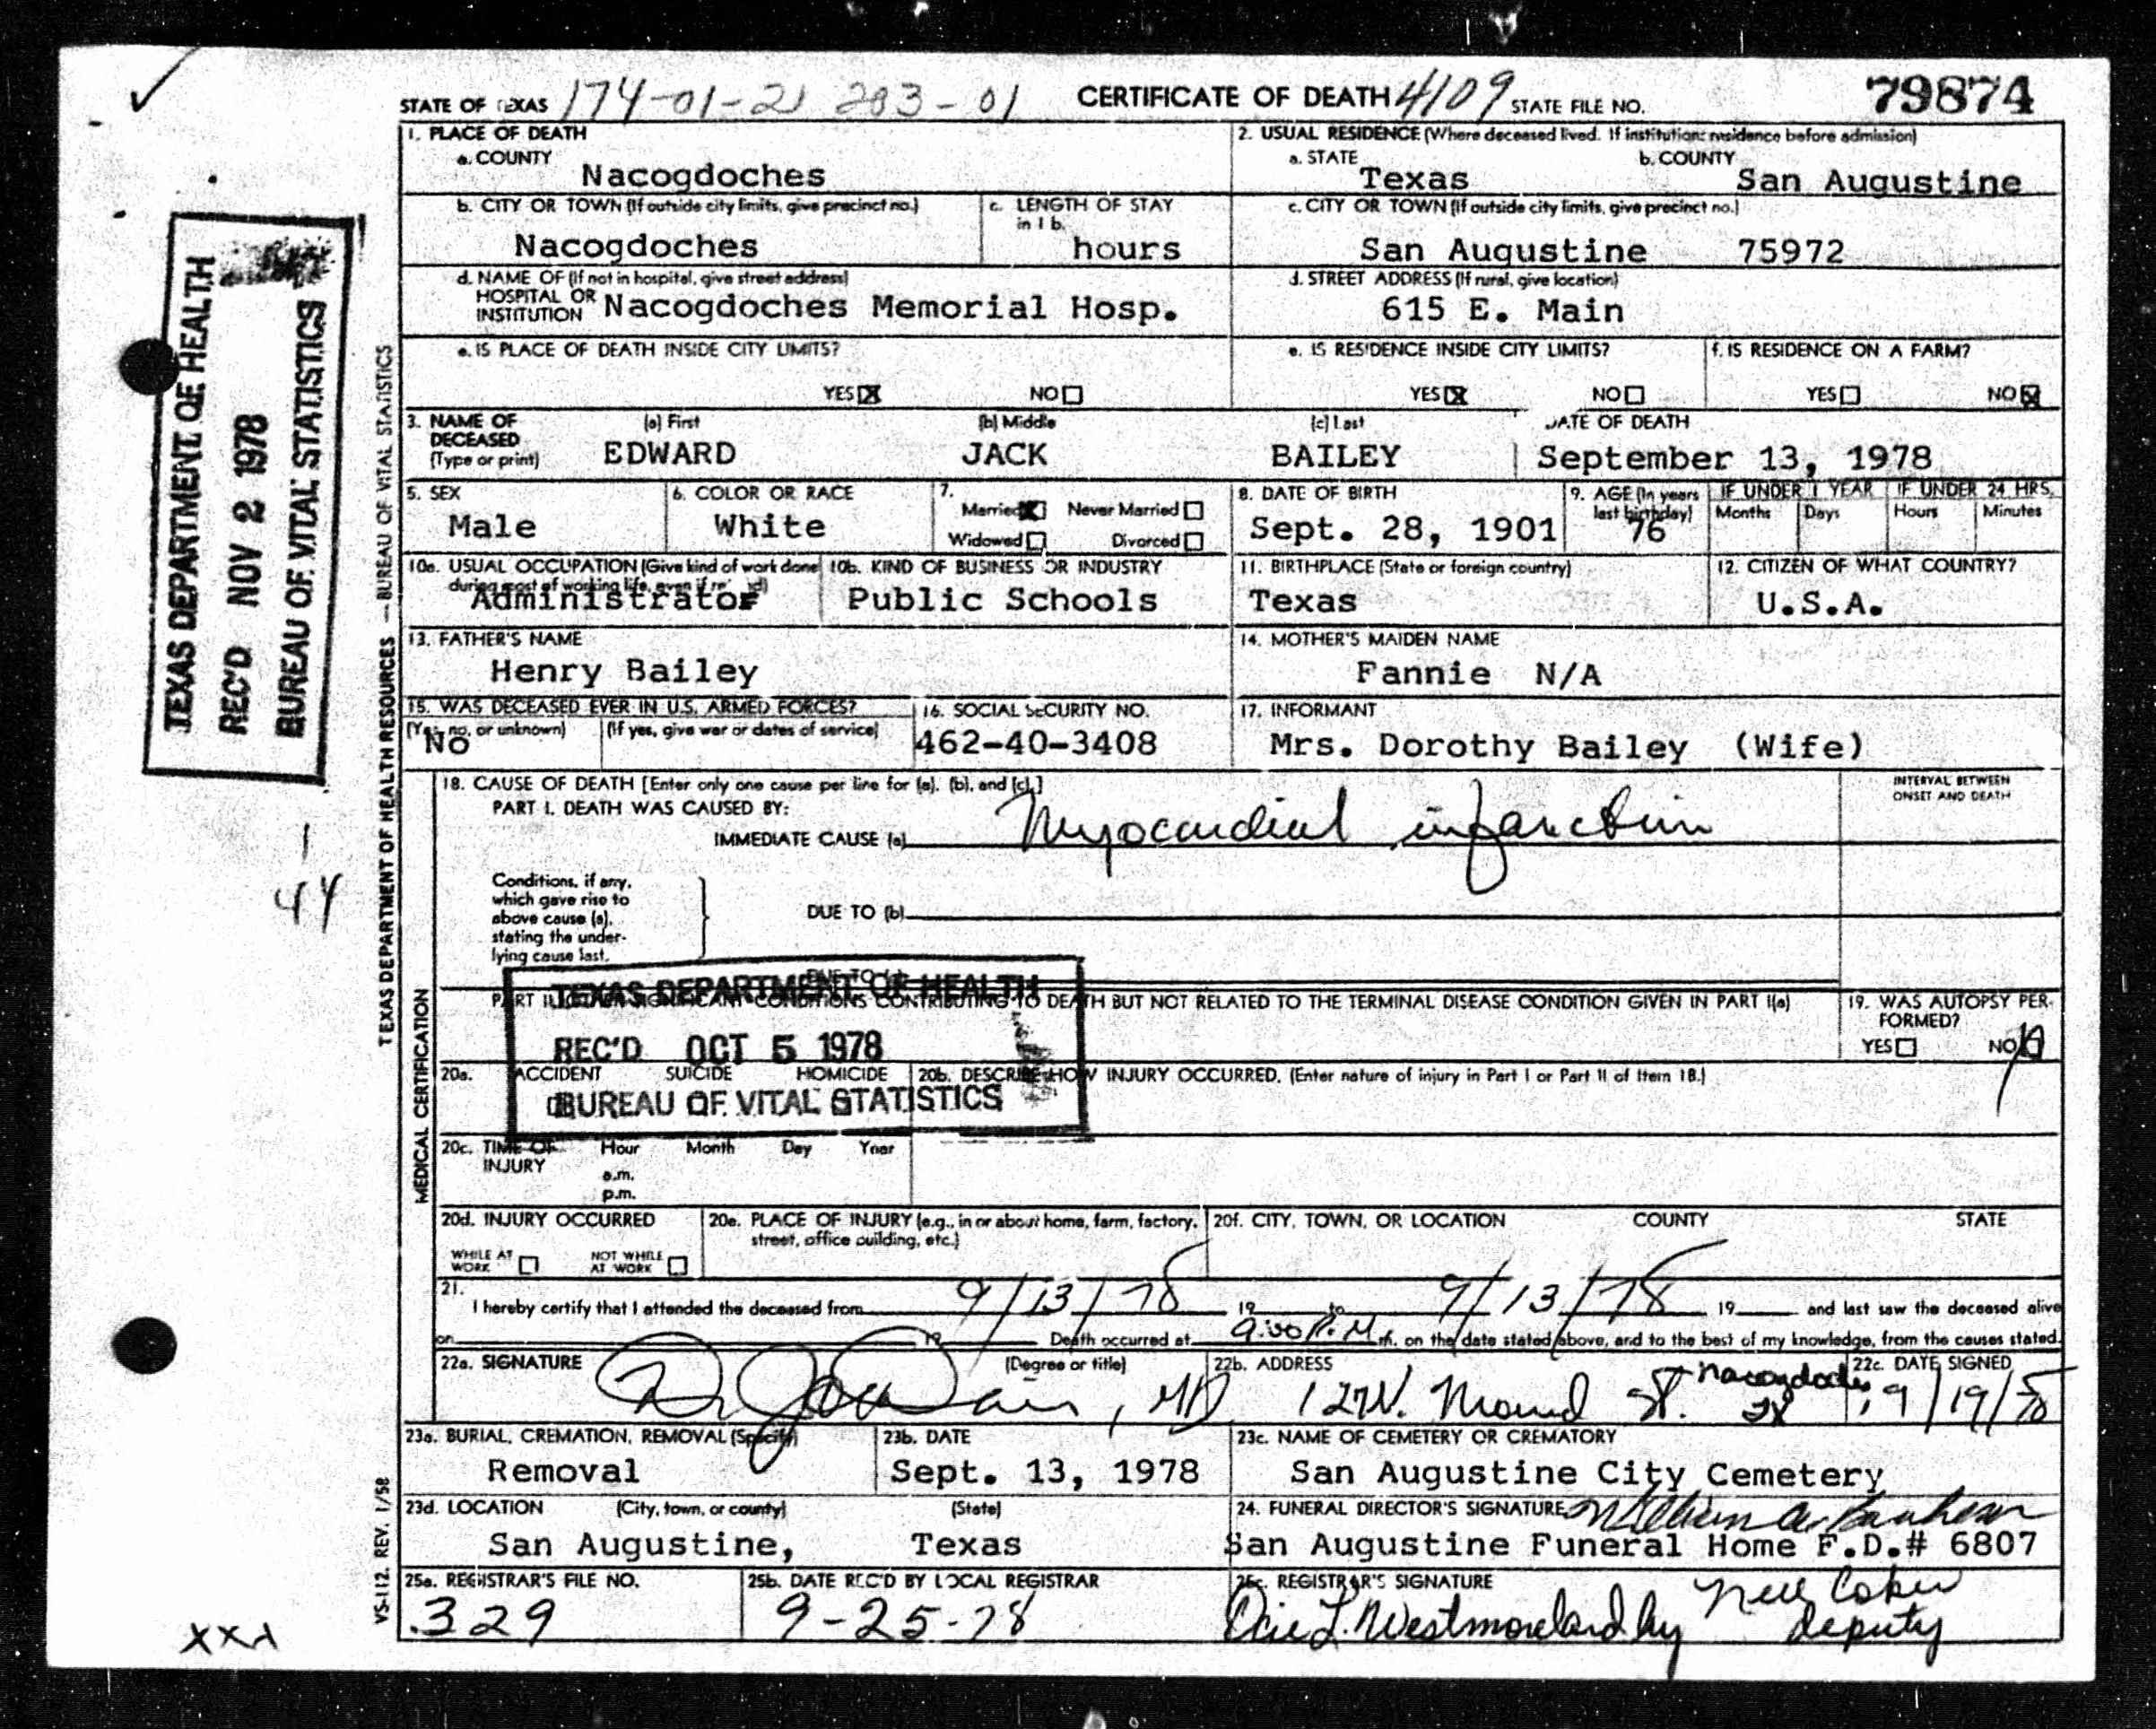 STATE OF TEXAS 174-01-21 203-01 CERTIFICATE OF DEATH 4109 STATE FILE NO. 79874
1. PLACE OF DEATH
a. COUNTY
Nacogdoches
2. USUAL RESIDENCE (Where deceased lived. If institution: residence before admission)
a. STATE
Texas
b. COUNTY
San Augustine
b. CITY OR TOWN (If outside city limits, give precinct no.)
Nacogdoches
c. LENGTH OF STAY
in 1 b.
hours
c. CITY OR TOWN (If outside city limits, give precinct no.)
San Augustine 75972
d. NAME OF (If not in hospital, give street address)
HOSPITAL OR
INSTITUTION
Nacogdoches Memorial Hosp.
d. STREET ADDRESS (If rural, give location)
615 E. Main
e. IS PLACE OF DEATH INSIDE CITY LIMITS?
YES X NO
e. IS RESIDENCE INSIDE CITY LIMITS?
YES X NO
f. IS RESIDENCE ON A FARM?
YES NO X
3. NAME OF
DECEASED
(Type or print)
(a) First
EDWARD
(b) Middle
JACK
(c) Last
BAILEY
DATE OF DEATH
September 13, 1978
5. SEX
Male
6. COLOR OR RACE
White
7.
Married X Never Married
Widowed Divorced
8. DATE OF BIRTH
Sept. 28, 1901
9. AGE (In years
last birthday)
76
IF UNDER 1 YEAR
Months Days
IF UNDER 24 HRS.
Hours Minutes
10a. USUAL OCCUPATION (Give kind of work done
during most of working life, even if
Administrator
10b. KIND OF BUSINESS OR INDUSTRY
Public Schools
11. BIRTHPLACE (State or foreign country)
Texas
12. CITIZEN OF WHAT COUNTRY?
U.S.A.
13. FATHER'S NAME
Henry Bailey
14. MOTHER'S MAIDEN NAME
Fannie N/A
15. WAS DECEASED EVER IN U.S. ARMED FORCES?
(Yes, no, or unknown) (If yes, give war or dates of service)
No
16. SOCIAL SECURITY NO.
462-40-3408
17. INFORMANT
Mrs. Dorothy Bailey (Wife)
18. CAUSE OF DEATH [Enter only one cause per line for (a), (b), and (c).]
PART I. DEATH WAS CAUSED BY:
IMMEDIATE CAUSE (a) Myocardial infarction
INTERVAL BETWEEN
ONSET AND DEATH
Conditions, if any,
which gave rise to
above cause (a),
stating the under-
lying cause last.
DUE TO (b)
DUE TO
PART II. OTHER SIGNIFICANT CONDITIONS CONTRIBUTING TO DEATH BUT NOT RELATED TO THE TERMINAL DISEASE CONDITION GIVEN IN PART I(a)
19. WAS AUTOPSY PER-
FORMED?
YES NO
TEXAS DEPARTMENT OF HEALTH
REC'D OCT 5 1978
BUREAU OF VITAL STATISTICS
20a. ACCIDENT SUICIDE HOMICIDE
20b. DESCRIBE HOW INJURY OCCURRED. (Enter nature of injury in Part I or Part II of Item 18.)
20c. TIME OF
INJURY
Hour Month Day Year
a.m.
p.m.
20d. INJURY OCCURRED
WHILE AT
WORK
NOT WHILE
AT WORK
20e. PLACE OF INJURY (e.g., in or about home, farm, factory,
street, office building, etc.)
20f. CITY, TOWN, OR LOCATION COUNTY STATE
21.
I hereby certify that I attended the deceased from 9/13/78 19 to 9/13/78 19 and last saw the deceased alive
on 19 Death occurred at 9:00 P.M. m. on the date stated above, and to the best of my knowledge, from the causes stated.
22a. SIGNATURE (Degree or title)
, MD
22b. ADDRESS
12 W. Mound St. Nacogdoches, TX
22c. DATE SIGNED
9/19/78
23a. BURIAL, CREMATION, REMOVAL (Specify)
Removal
23b. DATE
Sept. 13, 1978
23c. NAME OF CEMETERY OR CREMATORY
San Augustine City Cemetery
23d. LOCATION (City, town, or county) (State)
San Augustine, Texas
24. FUNERAL DIRECTOR'S SIGNATURE
San Augustine Funeral Home F.D.# 6807
25a. REGISTRAR'S FILE NO.
329
25b. DATE REC'D BY LOCAL REGISTRAR
9-25-78
25c. REGISTRAR'S SIGNATURE
L. Westmoreland by Nell Coker
deputy
TEXAS DEPARTMENT OF HEALTH
REC'D NOV 2 1978
BUREAU OF VITAL STATISTICS
TEXAS DEPARTMENT OF HEALTH RESOURCES — BUREAU OF VITAL STATISTICS
MEDICAL CERTIFICATION
VS-112. REV. 1/58
1
44
XXX